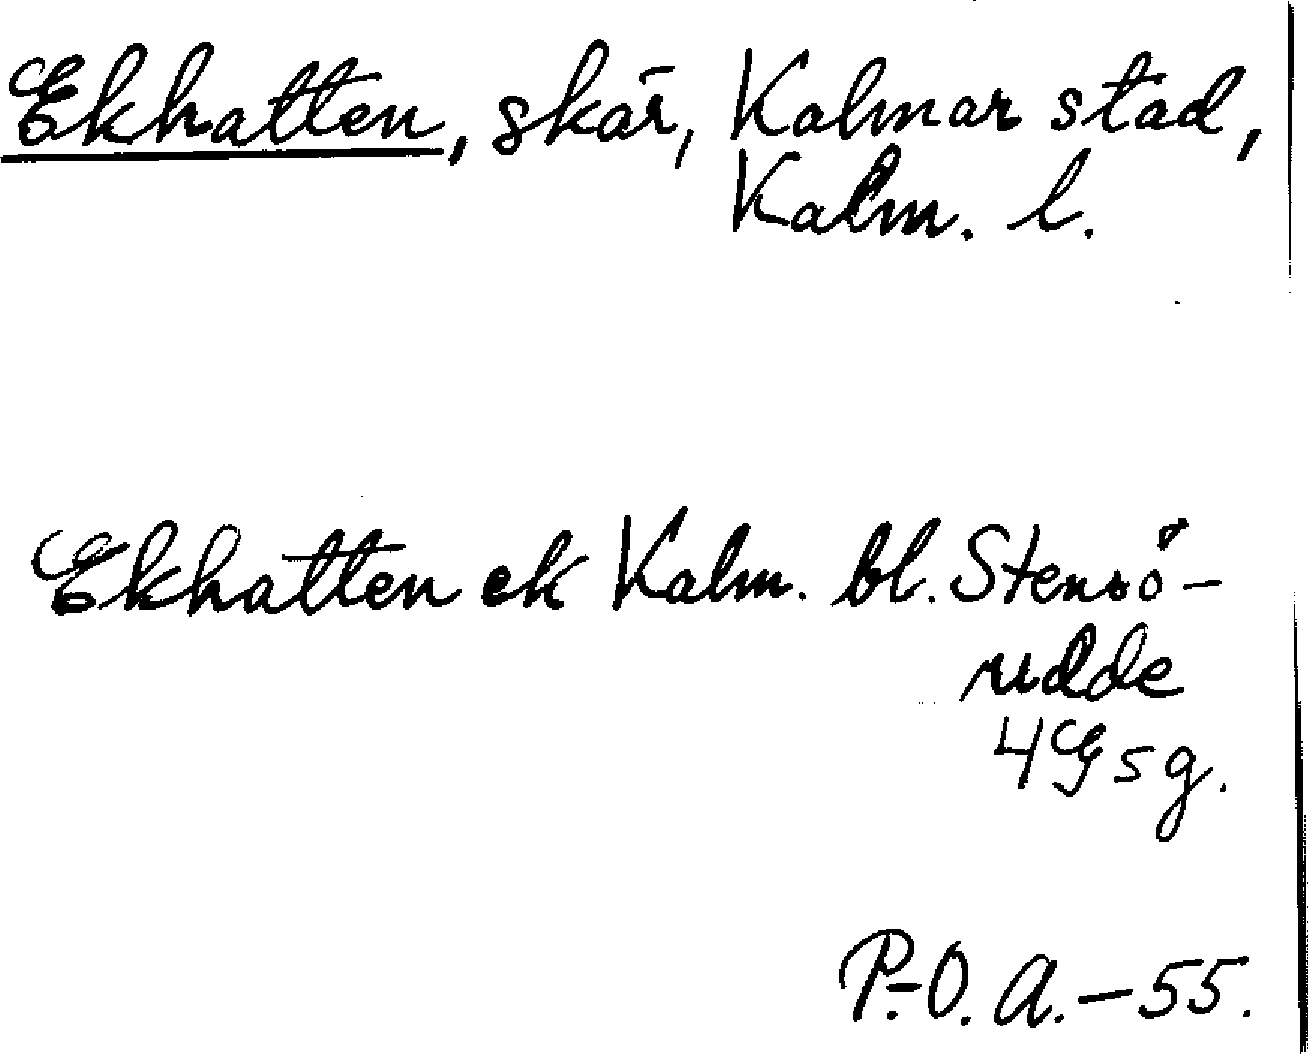 Ekhatten, skär, Kalmar stad,
Kalm. l.
Ekhatten ek Kalm. bl. Stensö-
udde
4G5g.
P.-O. A. - 55.